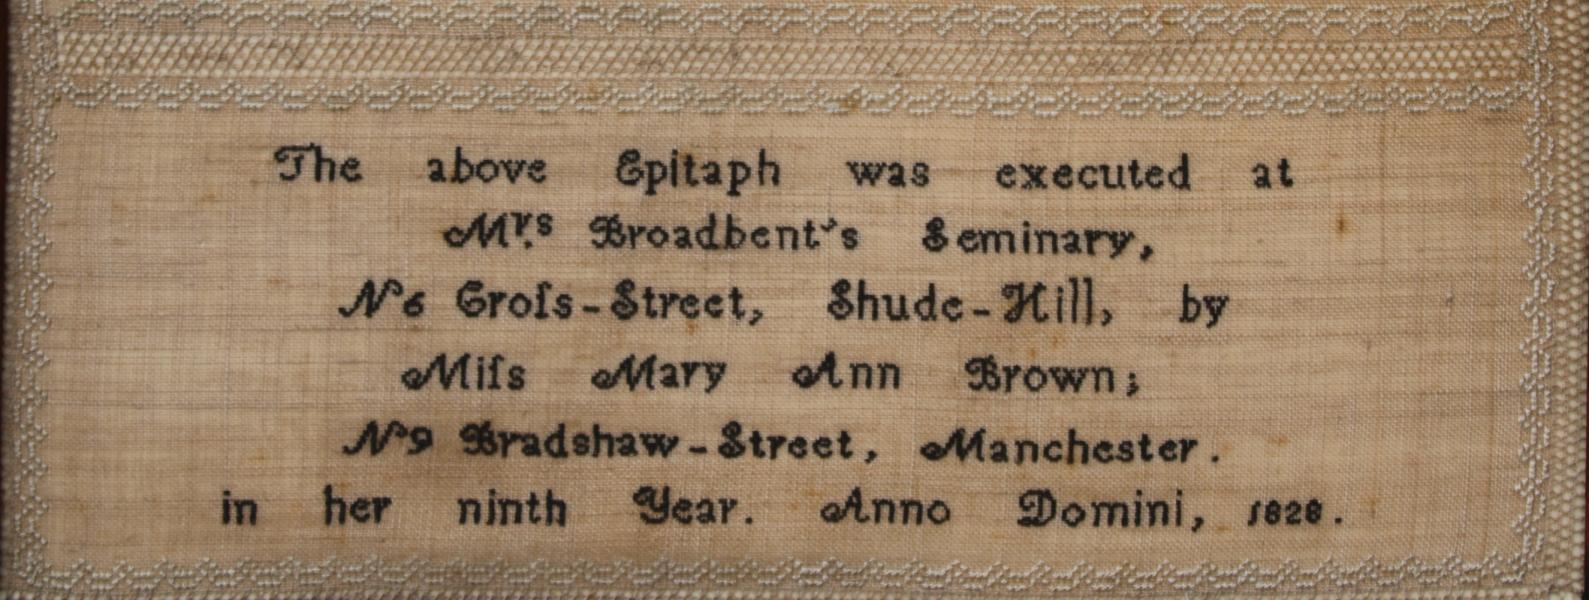 The above Epitaph was executed at
Mr.s Broadbent's Seminary,
No 6 Croſs-Street, Shude-Hill, by
Miſs Mary Ann Brown;
No 9 Bradshaw-Street, Manchester.
in her ninth Year. Anno Domini, 1828.